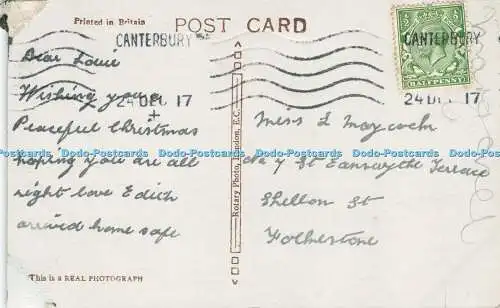 Printed in Britain
POST CARD
CANTERBURY
CANTERBURY
24 DEC 17
24 DEC 17
HALFPENNY
Dear Louie
Wishing you a
Peaceful Christmas
hoping you are all
right love Edith
arrived home safe
This is a REAL PHOTOGRAPH
Rotary Photo, London, E.C.
Miss L Maycock
No 7 St Eanswyth Terrace
Shellon St
Folkestone
Dodo-Postcards Dodo-Postcards Dodo-Postcards Dodo-Postcards Dodo-Postcards Dodo-Postcards